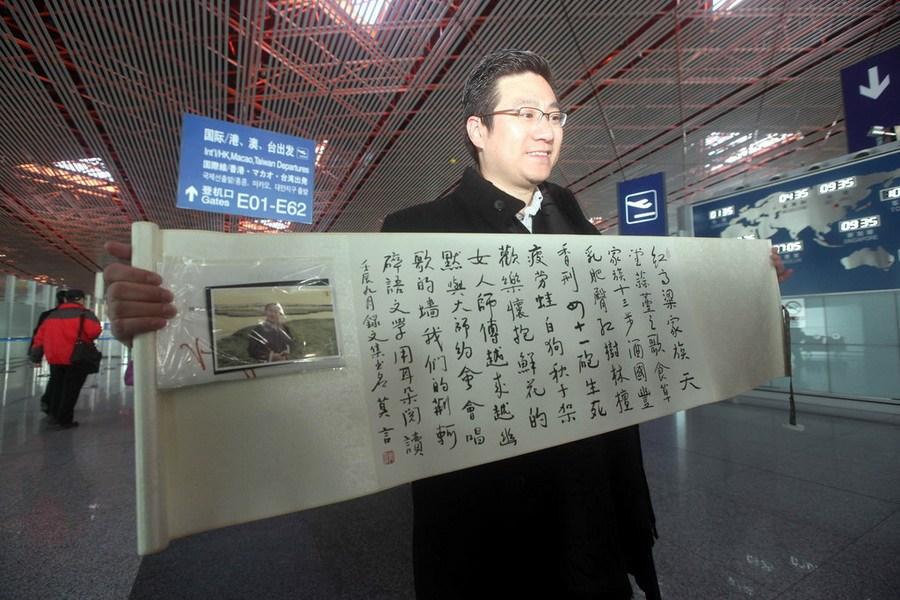 国际/港、澳、台出发
Int'l/HK,Macao,Taiwan Departures
国際線/香港・マカオ・台湾出発
국제선출발/홍콩, 마카오, 대만지구 출발
登机口
Gates E01-E62
04:35
09:35
09:35
红高粱家族 天
堂蒜薹之歌 食草
家族十三步酒國豐
乳肥臀红樹林檀
香刑四十一砲生死
疲劳蛙白狗秋千架
歡樂懷抱鮮花的
女人師傅越來越幽
默與大師約會會唱
歌的墙我们的荆軻
碎語文學用耳朵閱讀
壬辰九月錄文集書名 莫言